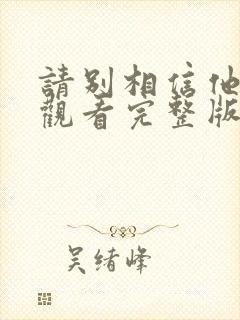 請別相信他
觀看完整版
吳绪峰